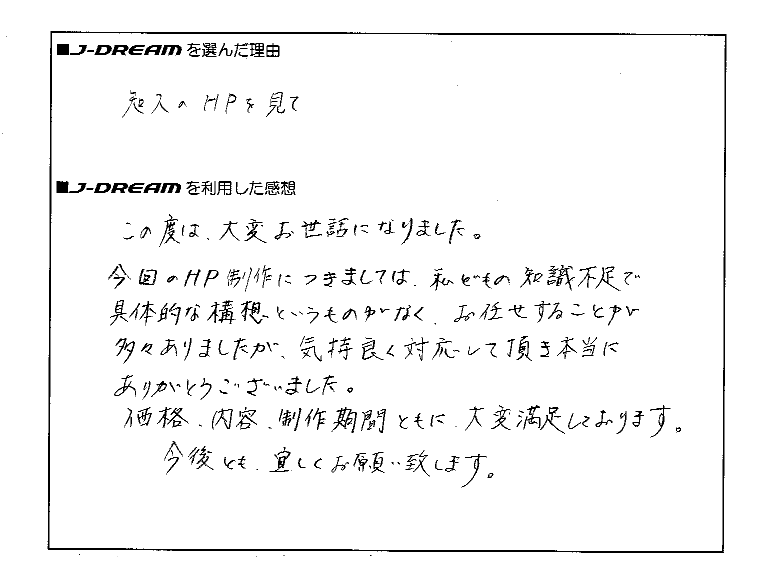 ■J-DREAMを選んだ理由
知人のHPを見て
■J-DREAMを利用した感想
この度は、大変お世話になりました。
今回のHP制作につきましては、私どもの知識不足で
具体的な構想というものがなく、お任せすることが
多々ありましたが、気持良く対応して頂き本当に
ありがとうございました。
価格、内容、制作期間ともに、大変満足しております。
今後とも、宜しくお願い致します。